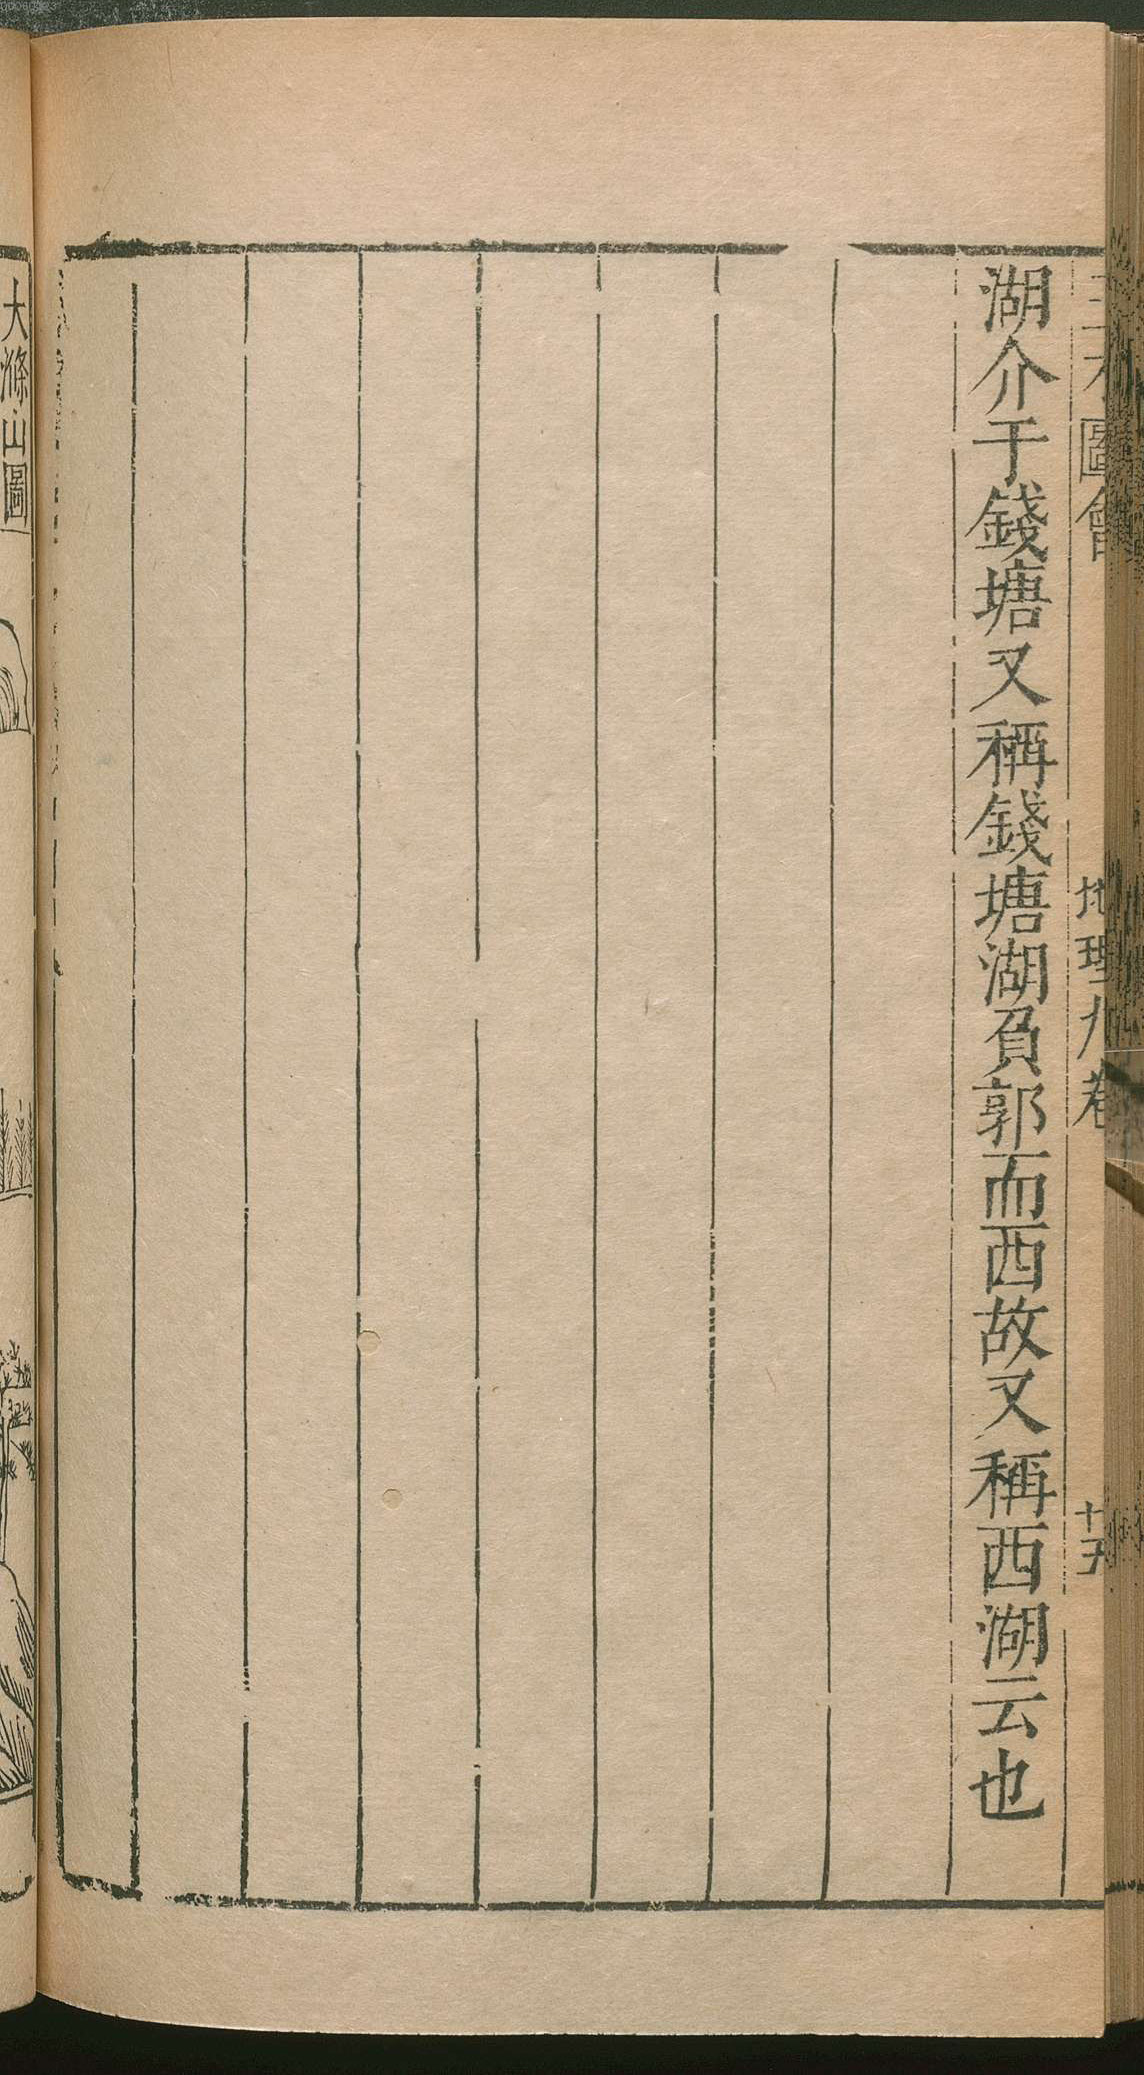 三才圖會 地理九卷 十五
湖介于錢塘又稱錢塘湖負郭而西故又稱西湖云也
大滌山圖